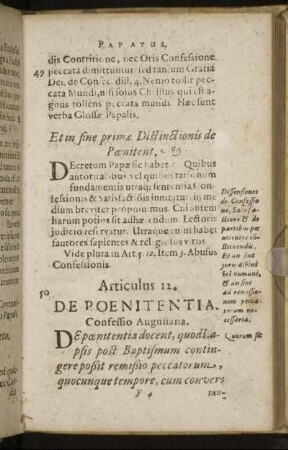 PAPATUS.
dis Contritione, nec Oris Confessione
49 peccata dimittuntur sed tantum Gratia
Dei. de Consec. dist. 4. Nemo tollit pec-
cata Mundi, nisi solus Christus qui est a-
gnus tollens peccata mundi. Hæc sunt
verba Glossæ Papalis.
Et in fine primæ Distinctionis de
Pœnitent, c. 89
Decretum Papæ sic habet: Quibus
autoritatibus vel quibus rationum
fundamentis utraq; sententia Con-
fessionis & Satisfactiõis innitatur in me-
dium breviter proposuimus. Cui autem
harum potius sit adhærendum Lectoris
judicio reservatur. Utraque enim habet
fautores sapientes & religiosos viros.
Vide plura in Art. 5. 12. Item 3. Abusus
Confessionis.
Dissensiones
de Confessio-
ne, Satisfa-
ctione & de
partibus pœ-
nitentiæ
An et sint
humani,
& an sint
ad remissio-
nem pecca-
torum ne-
cessaria.
50
Articulus 12.
DE POENITENTIA.
Confessio Augustana.
De pœnitentia docent, quod La-
psis post Baptismum contin-
gere possit remissio peccatorum,
quocunque tempore, cum convers
Quorum sit
F 4
tun-